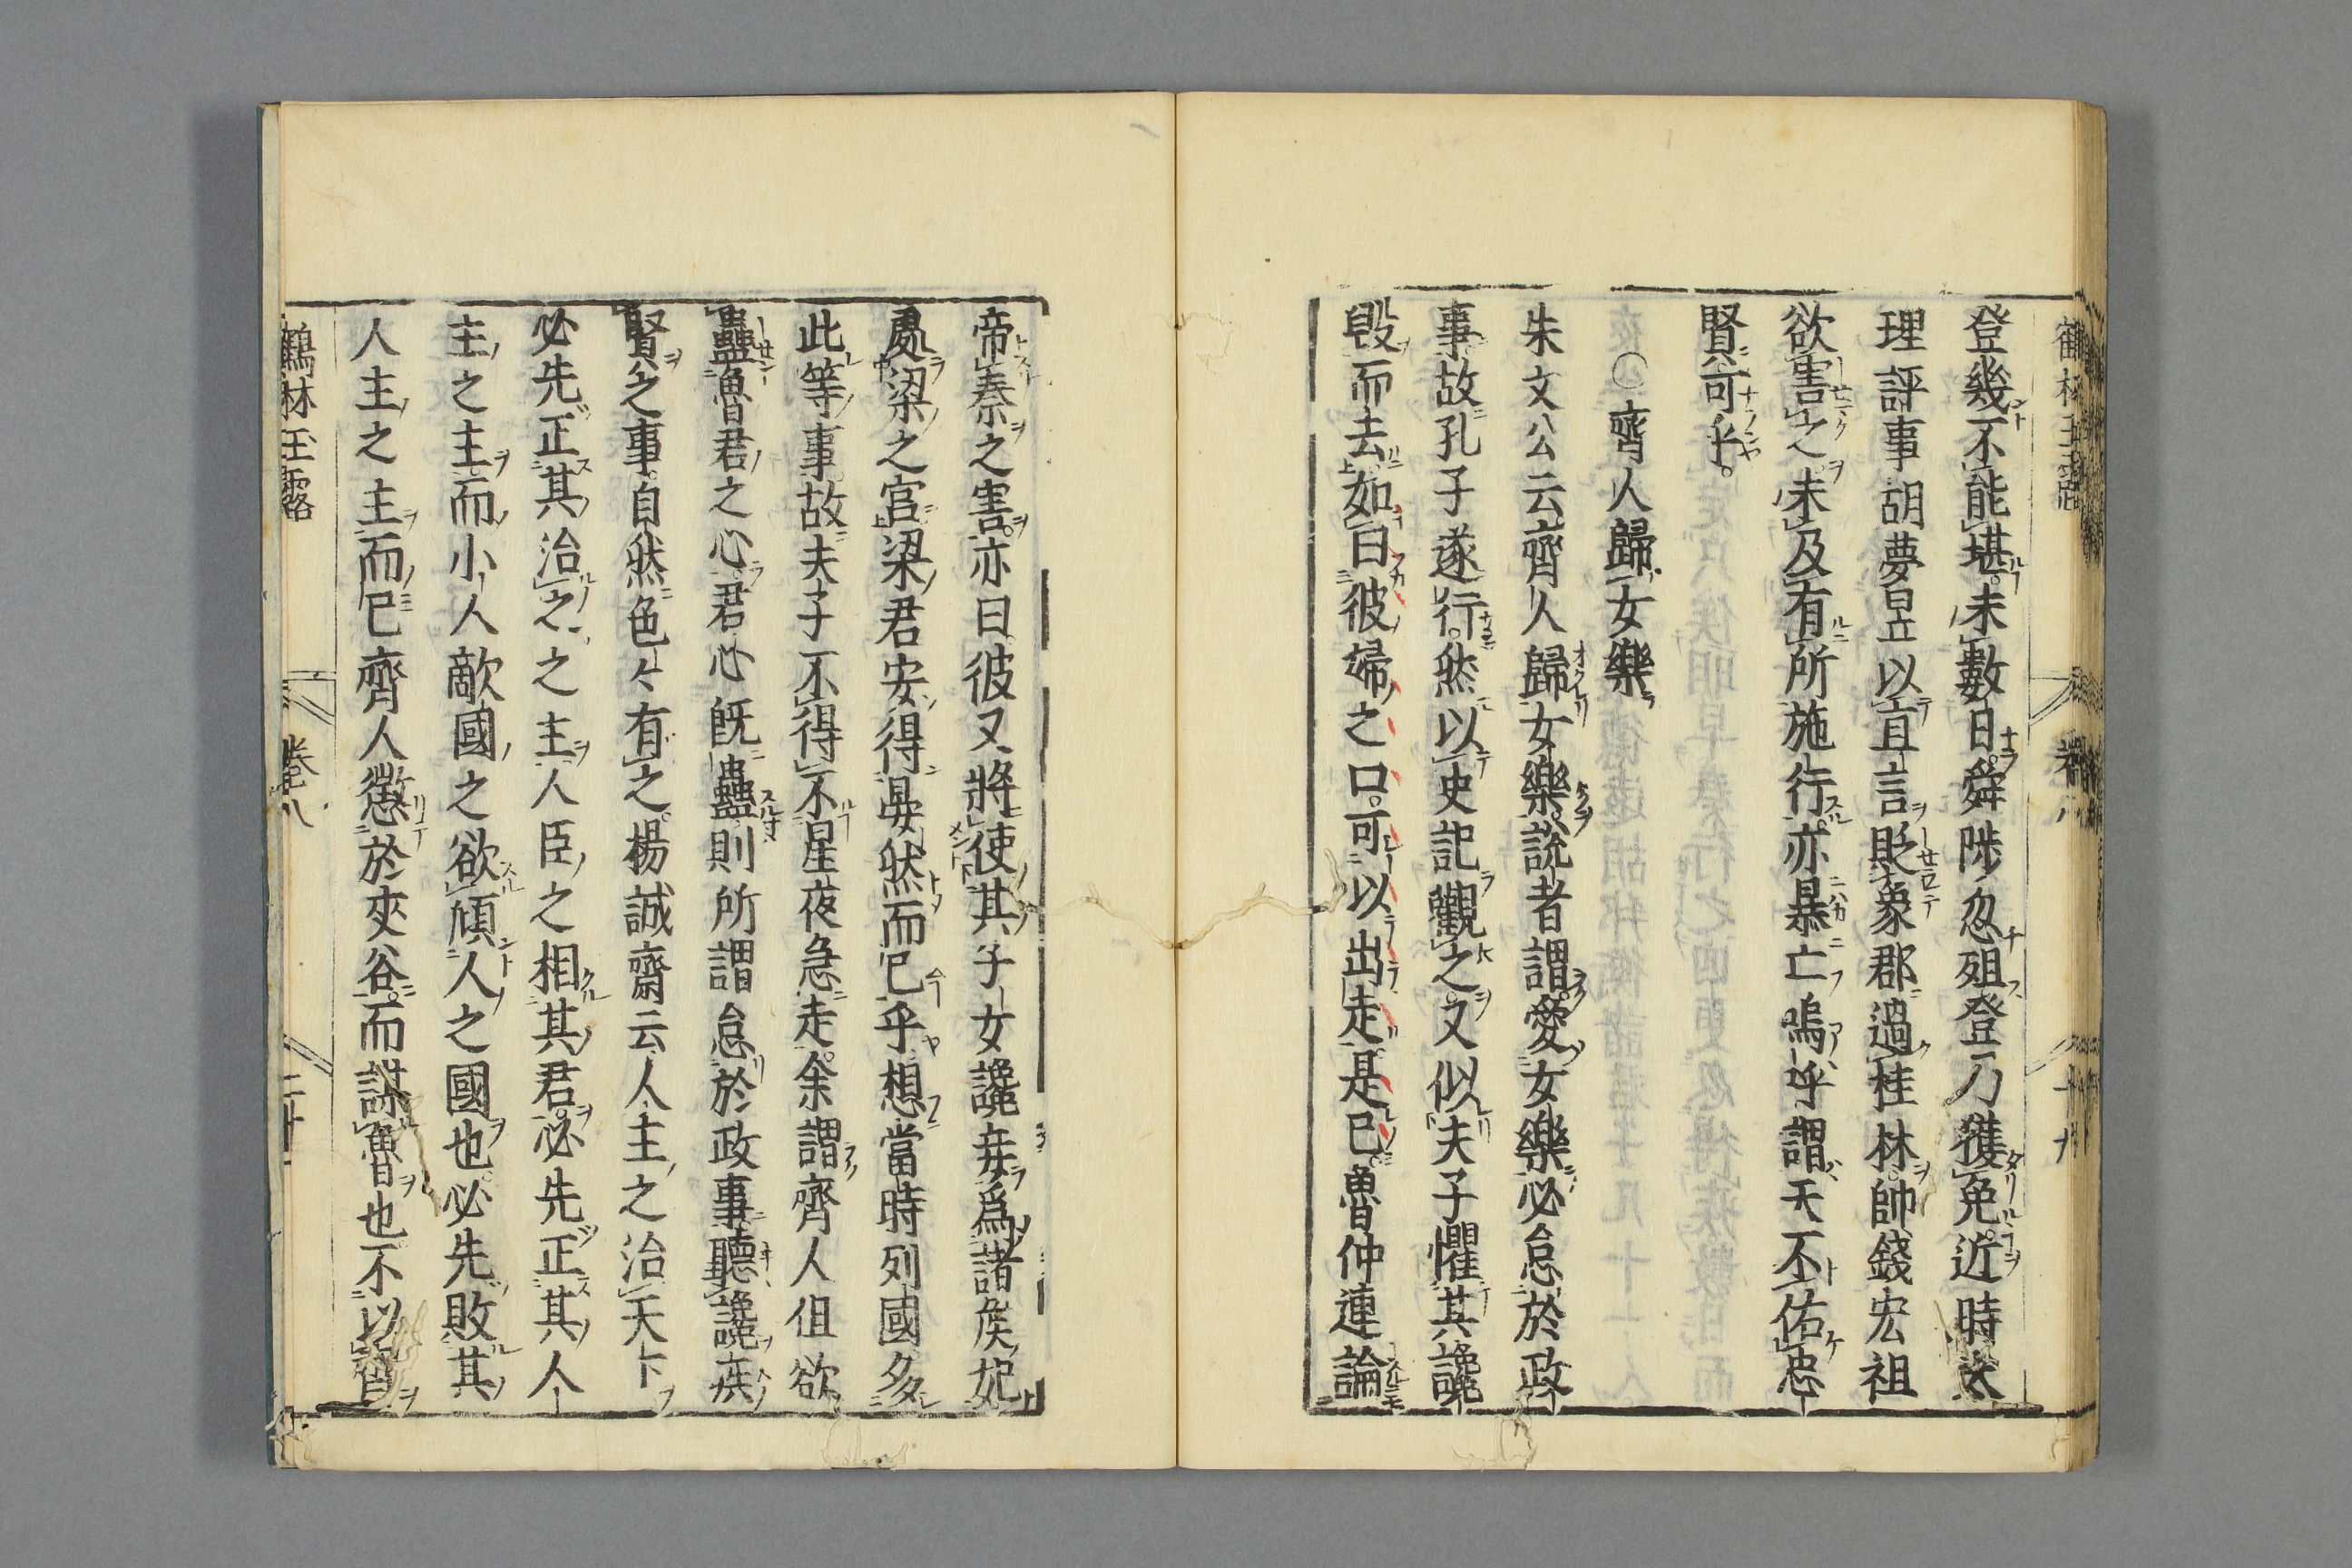 登幾不能堪未數日舜陟忽殂登乃獲免近時大
理評事胡夢昱以直言貶象郡過桂林帥錢宏祖
欲害之未及有所施行亦暴亡嗚呼謂天不佑忠
賢可乎
○齊人歸女樂
朱文公云齊人歸女樂說者謂愛女樂必怠於政
事故孔子遂行然以史記觀之又似夫子懼其讒
毀而去如曰彼婦之口可以出走是已魯仲連論
帝秦之害亦曰彼又將使其子女讒妾爲諸侯妃
處梁之宮梁君安得晏然而已乎想當時列國多
此等事故夫子不得不星夜急走余謂齊人但欲
蠱魯君之心君心旣蠱則所謂怠於政事聽讒疾
賢之事自然色々有之楊誠齋云人主之治天下
必先正其治之之主人臣之相其君必先正其人
主之主而小人敵國之欲傾人之國也必先敗其
人主之主而已齊人懲於夾谷而謀魯也不以
鶴林玉露
卷八
鶴林玉露
卷八
十九